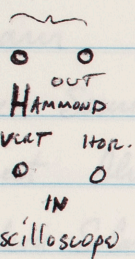 OUT
HAMMOND
VERT HOR.
IN
scilloscope)